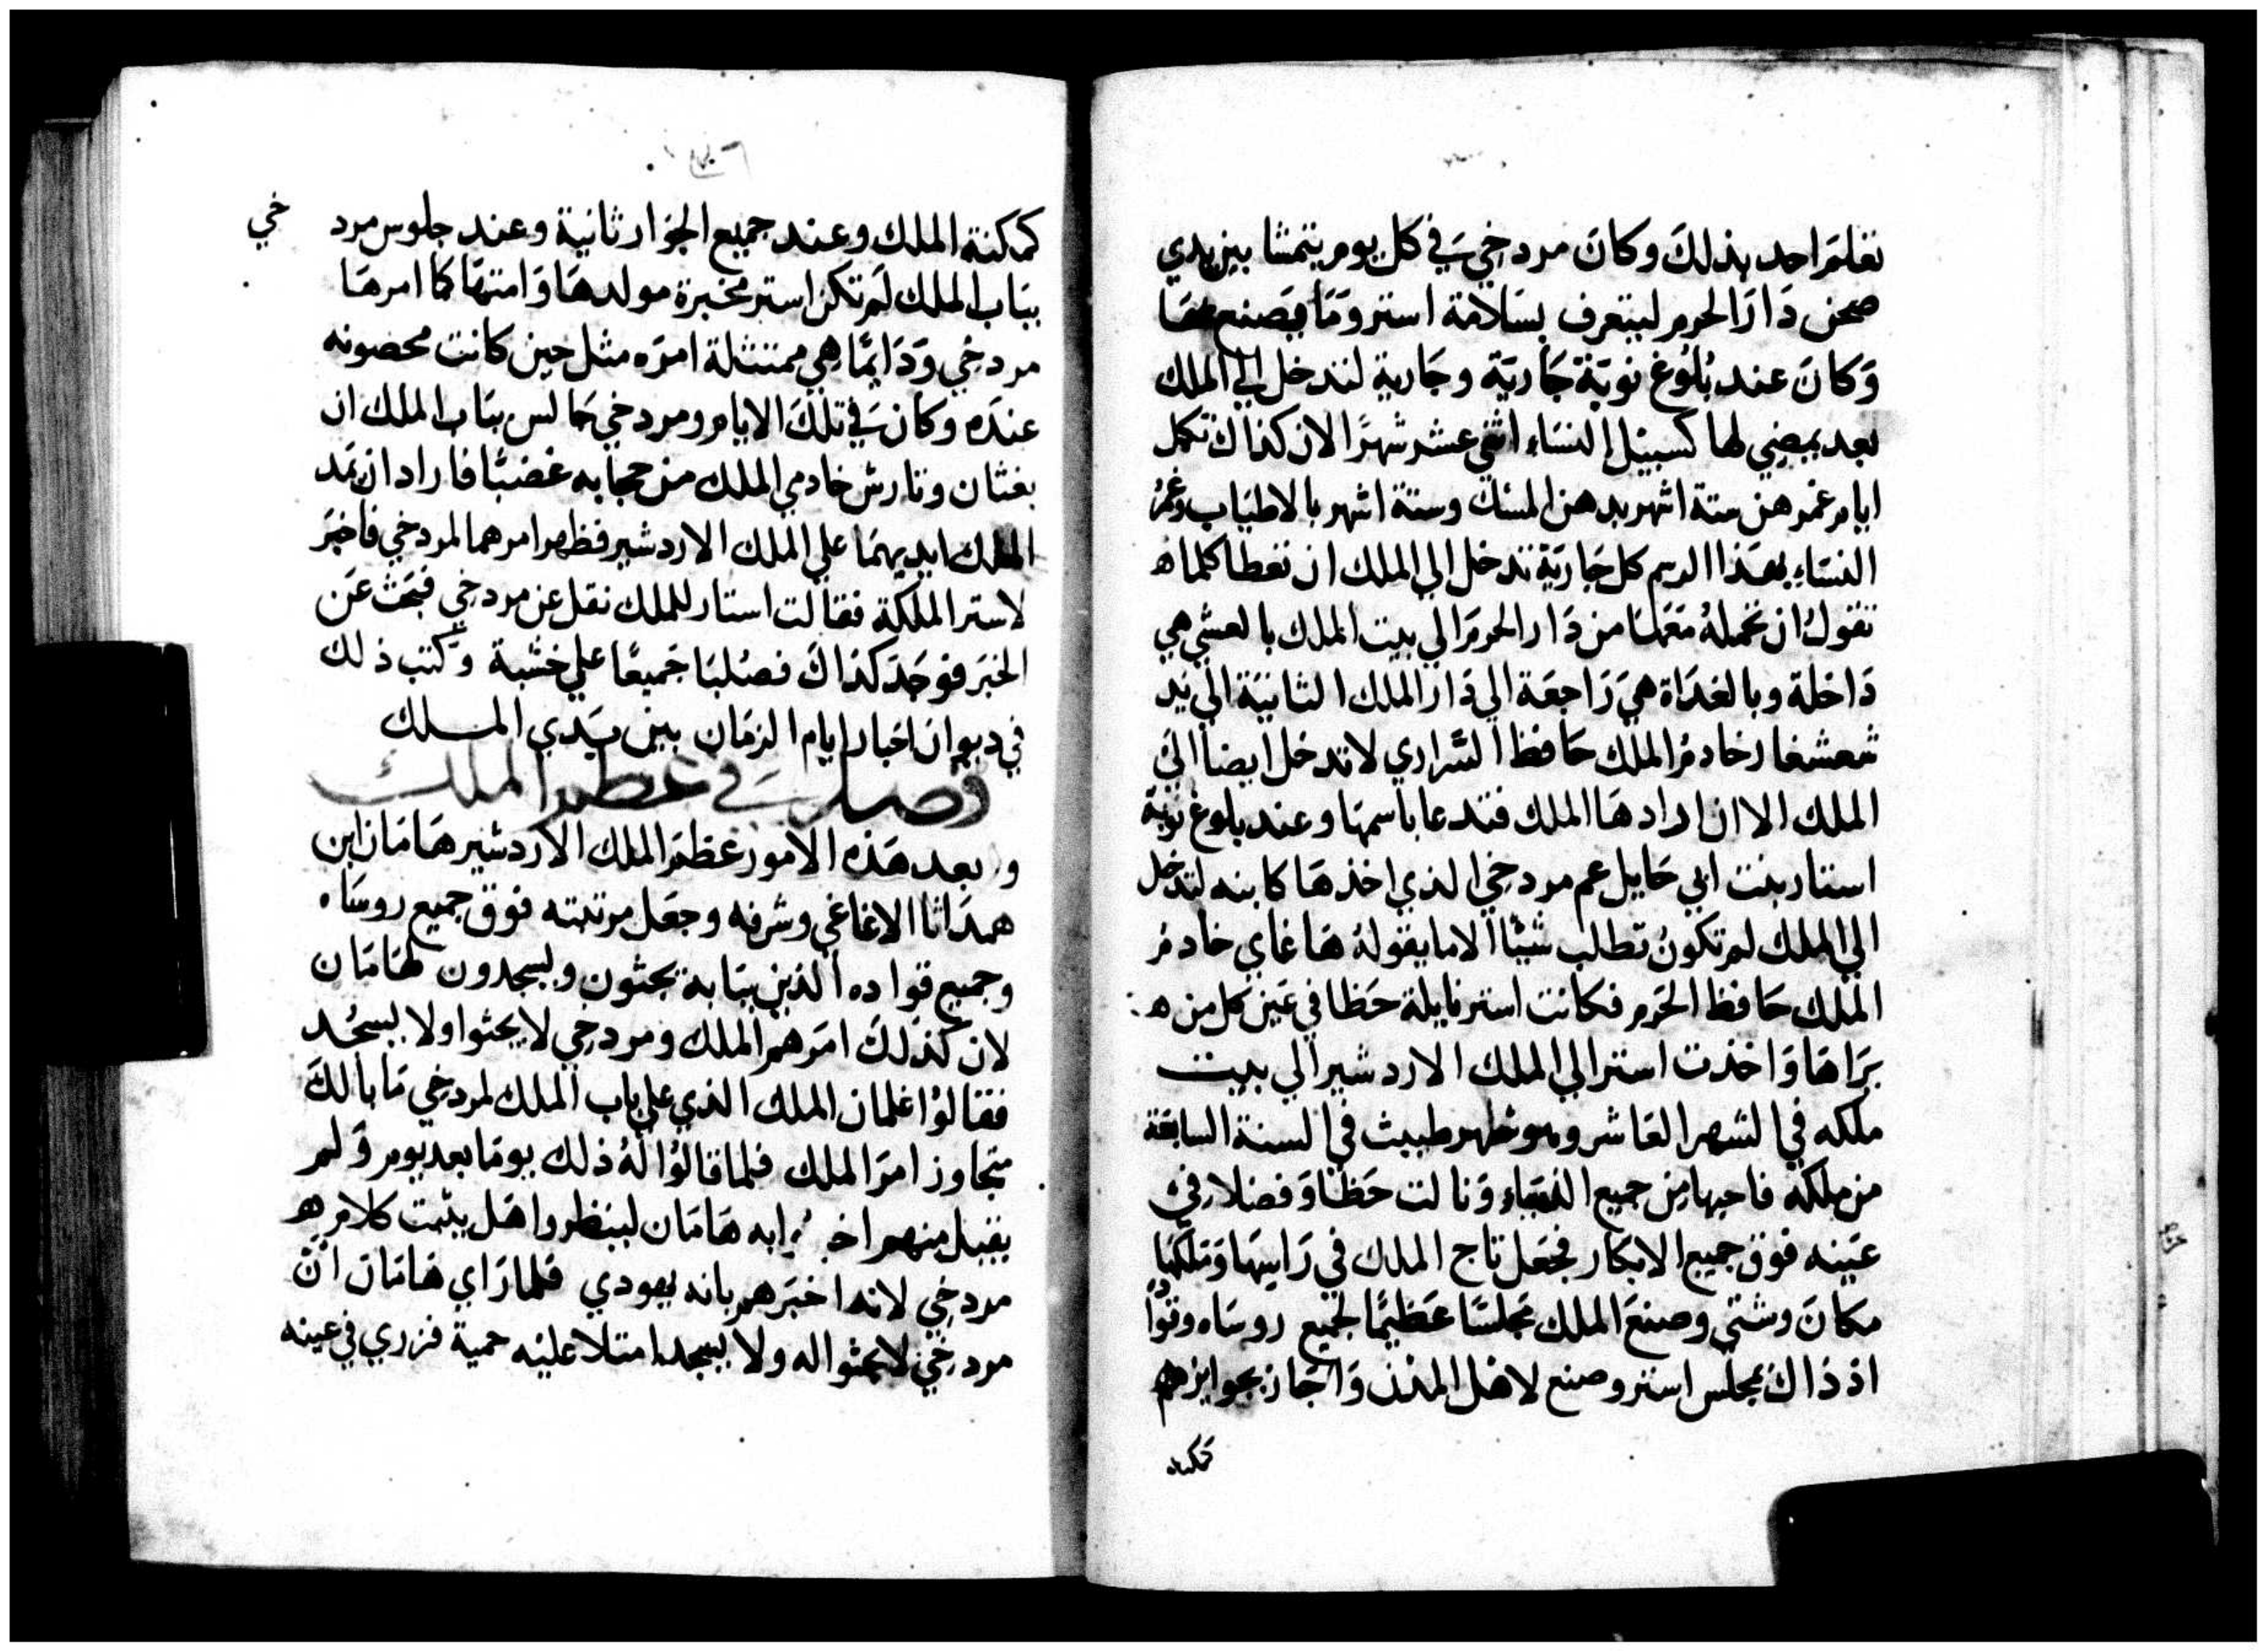 تعلم احد بذلك وكان مردخي في كل يوم يتمشا بين يدي
صحن دار الحرم ليتعرف بسلامة استر وما يصنع بها
وكان عند بلوغ نوبة جارية وجارية لتدخل الي الملك
بعد يمضي لها كسبيل النساء اثني عشر شهرا لان كذاك تكمل
ايام غمرهن ستة اشهر بدهن المسك وستة اشهر بالاطياب وغمر
النساء بهذا الرسم كل جارية تدخل الي الملك ان تعطا كلما
تقول ان تحمله معها من دار الحرم الي بيت الملك بالعشي هي
داخلة وبالغداة هي راجعة الي دار الملك الثانية الي يد
شعشغار خادم الملك حافظ السراري لا تدخل ايضا الي
الملك الا ان ارادها الملك فتدعا باسمها وعند بلوغ نوبة
استار بنت ابي حايل عم مردخي الذي اخذها كابنه لتدخل
الي الملك لم تكون تطلب شيئا الا ما يقوله هاغاي خادم
الملك حافظ الحرم فكانت استر نايلة حظا في عين كل من
براها واخذت استر الي الملك الاردشير الي بيت
ملكه في الشهر العاشر وهو شهر طبيث في السنة السابعة
من ملكه فاحبها من جميع النساء ونالت حظا وفضلا في
عينه فوق جميع الابكار فجعل تاج الملك في راسها وملكها
مكان وشتي وصنع الملك مجلسا عظيما لجميع روساه وقواد
اذ ذاك مجلس استر وصنع لاهل المدن واجاز بجوايزهم
كمكنة الملك وعند جميع الجوار ثانية وعند جلوس مردخي
بباب الملك لم تكن استر مخبرة مولدها وامتها كما امرها
مردخي ودايما هي ممتثلة امره مثل حين كانت محضونه
عنده وكان في تلك الايام ومردخي جالس بباب الملك ان
بغثان وتارش خادمي الملك من حجابه غضبا فارادا ان تمد
الملك ايديهما علي الملك الاردشير فظهر امرهما لمردخي فاخبر
لاستر الملكة فقالت استار للملك نقل عن مردخي فبحث عن
الخبر فوجد كذاك فصلبا جميعا علي خشبة وكتب ذلك
في ديوان اخبار ايام الزمان بين يدي الملك
فصل في عظم الملك
وبعد هذه الامور عظم الملك الاردشير هامان ابن
همداثا الاغاغي وشرفه وجعل مرتبته فوق جميع روساه
وجميع قواده الذين ببابه يجثون ويسجدون لهامان
لان كذلك امرهم الملك ومردخي لا يجثوا ولا يسجد
فقالوا غلمان الملك الذي علي باب الملك لمردخي ما بالك
متجاوز امر الملك فلما قالوا له ذلك يوما بعد يوم ولم
يقبل منهم ابه هامان لينظروا هل يثبت كلام
مردخي لانه اخبرهم بانه يهودي فلما راي هامان ان
مردخي لا يجثوا له ولا يسجد امتلا عليه حمية فزري في عينه